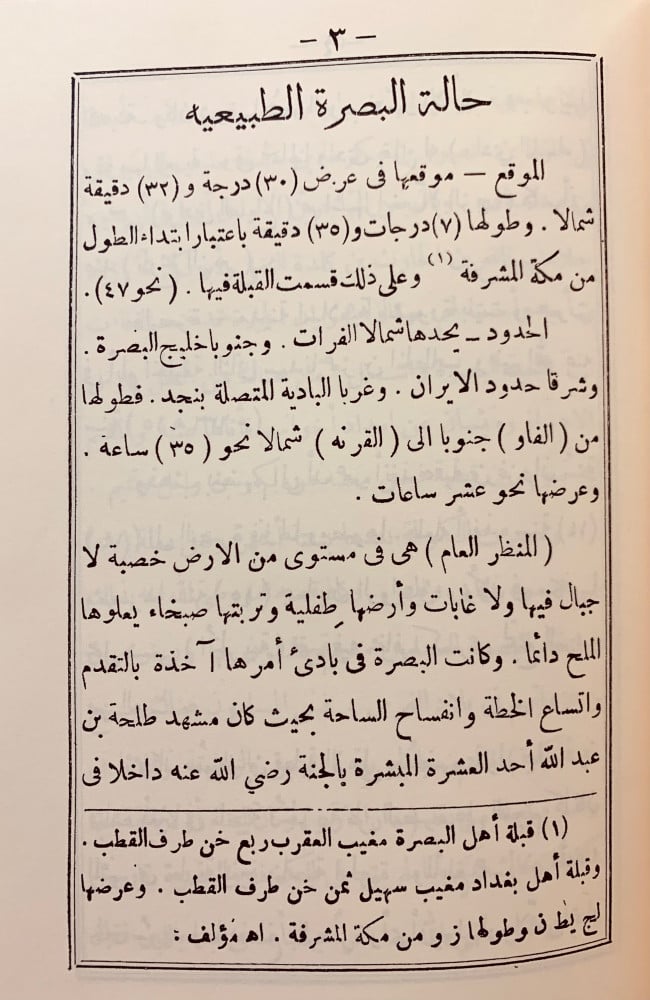 — ٣ —
حالة البصرة الطبيعيه
الموقع — موقعها فى عرض (٣٠) درجة و (٣٢) دقيقة
شمالا . وطولها (٧) درجات و (٣٥) دقيقة باعتبار ابتداء الطول
من مكة المشرفة (١) وعلى ذلك قسمت القبلة فيها . (نحو ٤٧) .
الحدود — يحدها شمالا الفرات . وجنوبا خليج البصرة .
وشرقا حدود الايران . وغربا البادية المتصلة بنجد . فطولها
من ( الفاو ) جنوبا الى ( القرنه ) شمالا نحو ( ٣٥ ) ساعة .
وعرضها نحو عشر ساعات .
( المنظر العام ) هى فى مستوى من الارض خصبة لا
جبال فيها ولا غابات وأرضها طفلية وتربتها صبخاء يعلوها
الملح دائما . وكانت البصرة فى بادئ أمرها آخذة بالتقدم
واتساع الخطة وانفساح الساحة بحيث كان مشهد طلحة بن
عبد الله أحد العشرة المبشرة بالجنة رضي الله عنه داخلا فى
(١) قبلة أهل البصرة مغيب العقرب ربع خن طرف القطب .
وقبلة أهل بغداد مغيب سهيل ثمن خن طرف القطب . وعرضها
لج يطن وطولها ز و من مكة المشرفة . اه مؤلف :